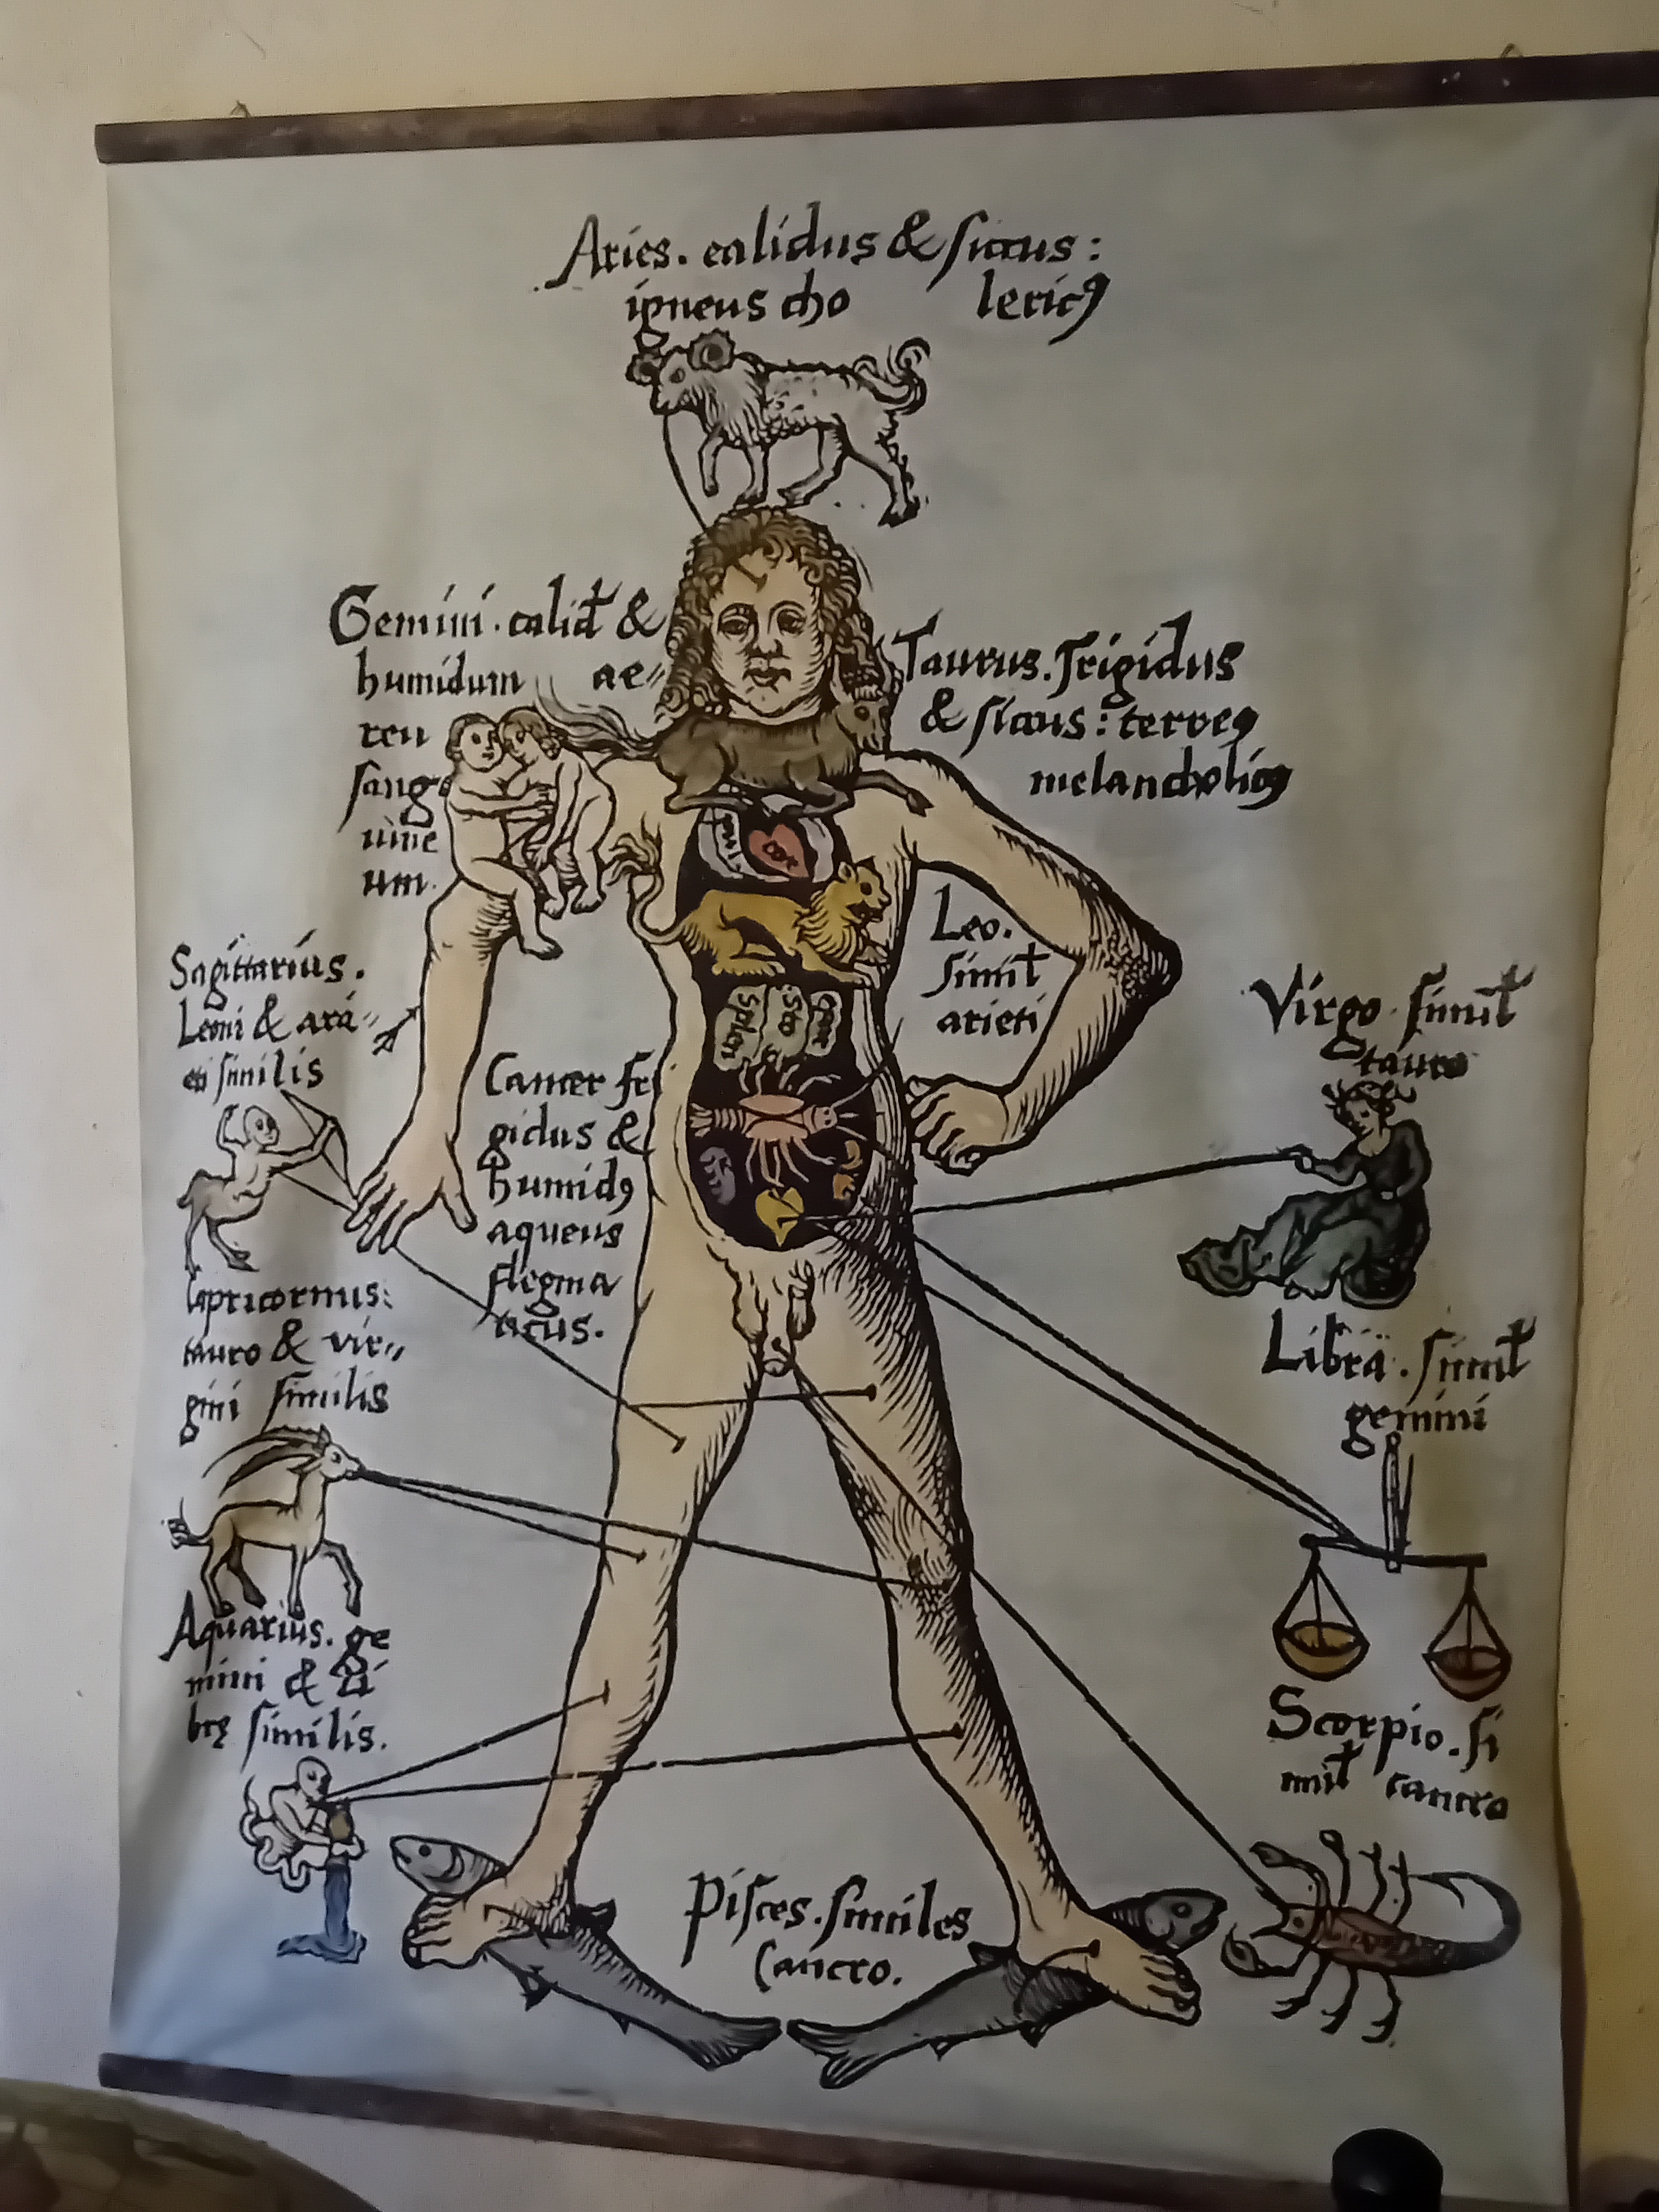 Aries. calidus & siccus:
igneus cho lericꝰ
Gemini. calid &
humidum ae⸗
reu
sang
uine
um.
Taurus. frigidus
& siccus: terreꝰ
melancholicꝰ
cor
Leo.
simil
arieti
Splen
Sto
Sagittarius.
Leoni & arı⸗
eti similis
Cancer fri
gidus &
humidꝰ
aqueus
flegma
ticus.
Virgo. simil
tauro
Capricornus:
tauro & vir⸗
gini similis
Libra. simil
gemini
Aquarius. ge
mini & li
brę similis.
Scorpio. si
mil cancro
Pisces. similes
Cancro.